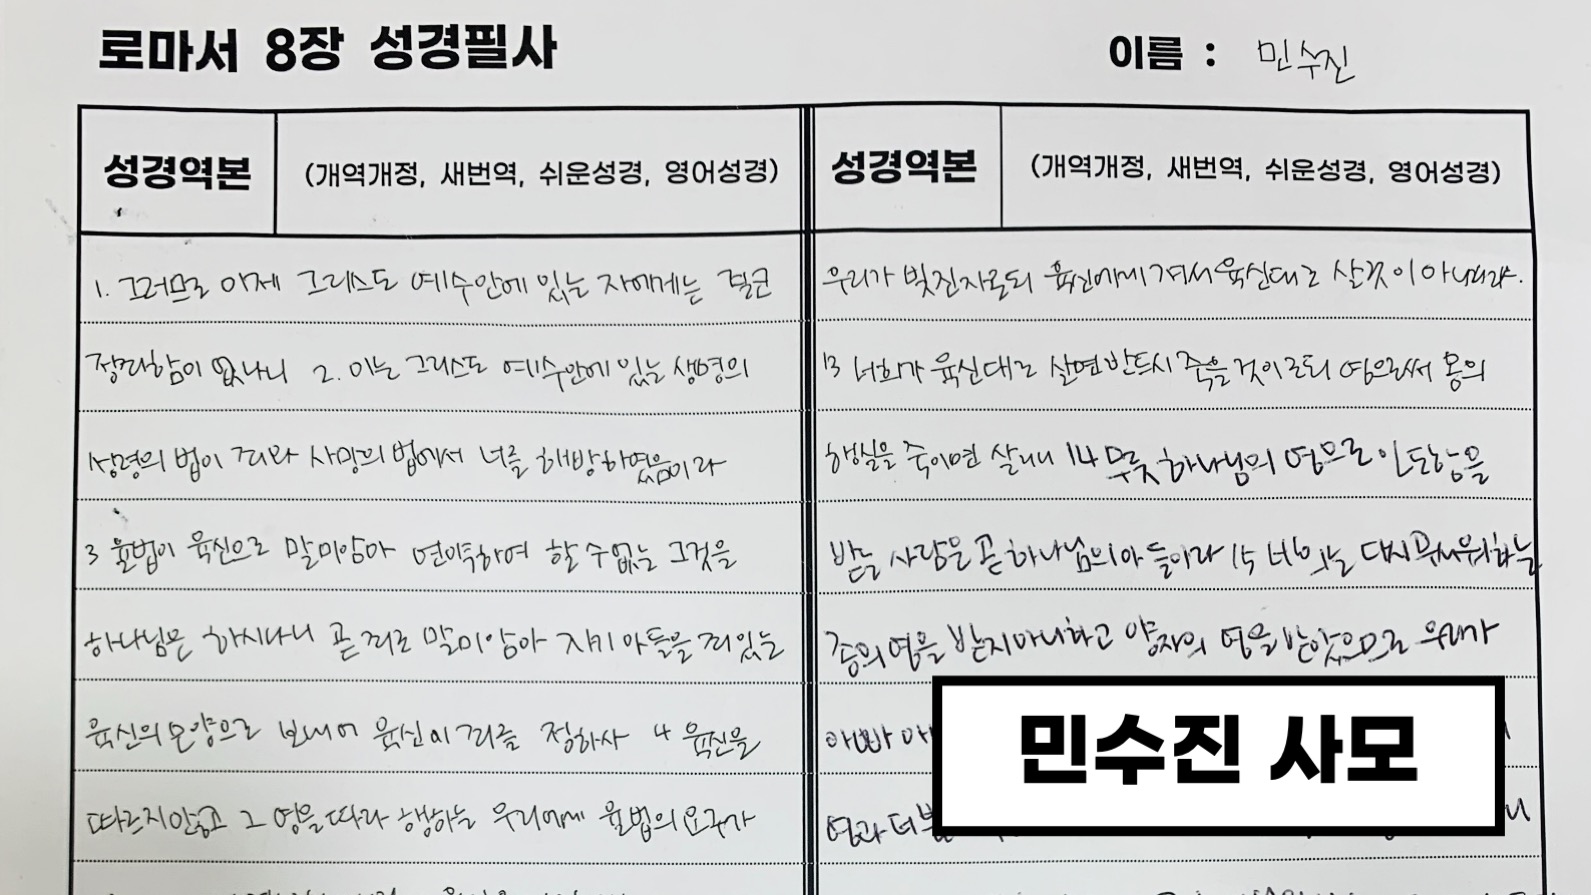 로마서 8장 성경필사
이름 : 민수진
성경역본
(개역개정, 새번역, 쉬운성경, 영어성경)
1. 그러므로 이제 그리스도 예수안에 있는 자에게는 결코
정죄함이 없나니 2. 이는 그리스도 예수안에 있는 생명의
성령의 법이 죄와 사망의 법에서 너를 해방하였음이라
3 율법이 육신으로 말미암아 연약하여 할 수 없는 그것을
하나님은 하시나니 곧 죄로 말미암아 자기 아들을 죄있는
육신의 모양으로 보내어 육신에 죄를 정하사 4 육신을
따르지않고 그 영을 따라 행하는 우리에게 율법의 요구가
성경역본
(개역개정, 새번역, 쉬운성경, 영어성경)
우리가 빚진자로되 육신에게 져서 육신대로 살것이 아니니라.
13 너희가 육신대로 살면 반드시 죽을 것이로되 영으로써 몸의
행실을 죽이면 살리니 14 무릇 하나님의 영으로 인도함을
받는 사람은 곧 하나님의 아들이라 15 너희는 다시 무서워하는
종의 영을 받지아니하고 양자의 영을 받았으므로 우리가
아빠
영과 더불
민수진 사모